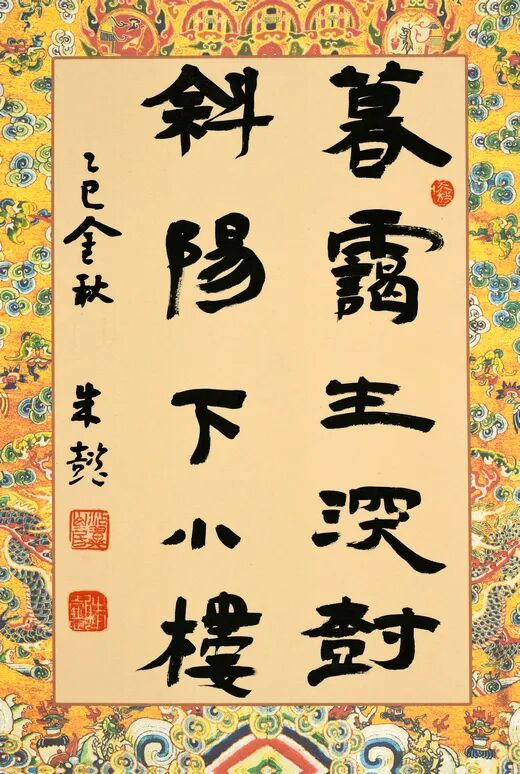 暮靄生深尌
斜陽下小樓
乙巳金秋 朱懿